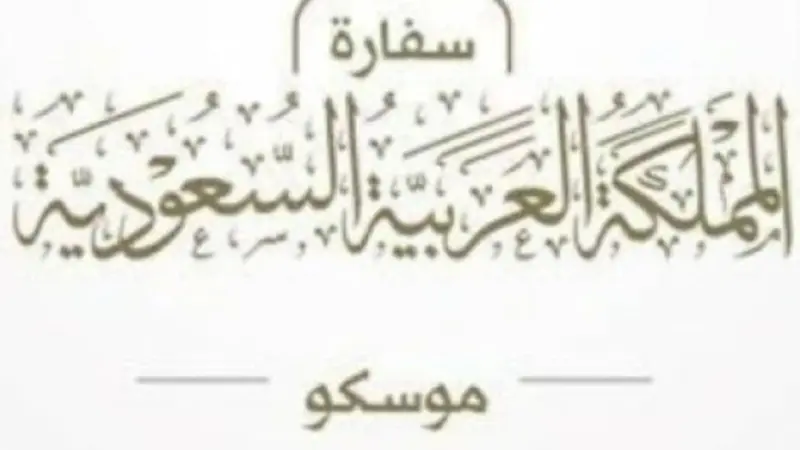 سفارة
المملكة العربية السعودية
موسكو